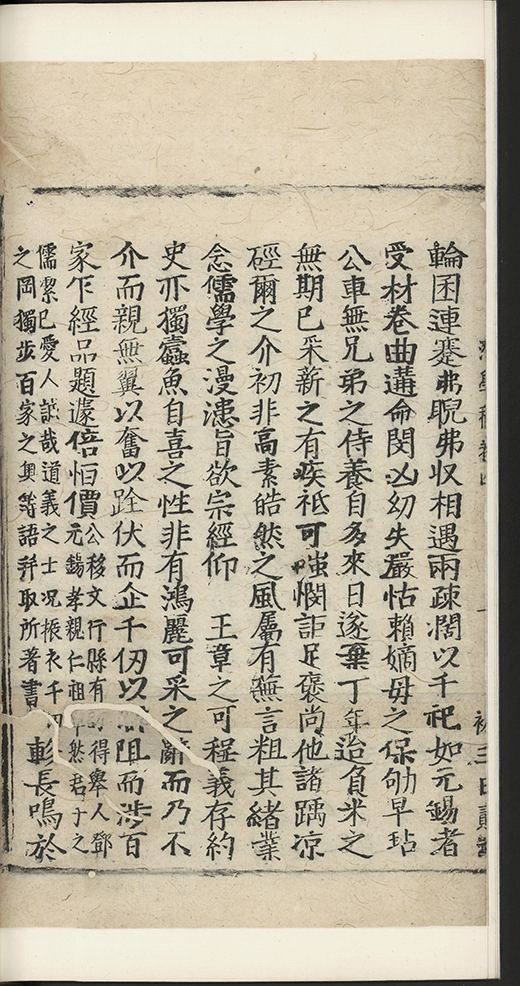 輪囷連蹇弗睨弗収相遇兩疎濶以千祀如元錫者
受材卷曲遘命閔凶幼失嚴怙賴嫡母之保劬早玷
公車無兄弟之侍養自多來日遂棄丁年迨負米之
無期已采新之有疾祗可嗤憫詎足褒尚他諸踽凉
硜爾之介初非高素皓然之風屬有蕪言粗其緒業
念儒學之漫漶旨欲宗經仰 王章之可程義存約
史亦獨蠹魚自喜之性非有鴻麗可采之辭而乃不
介而親無翼以奮以跧伏而企千仞以 阻而涉百
家乍經品題遽倍恒價公移文行縣有 得舉人鄧
元錫孝親仁祖 然君子之
儒潔巳愛人誠哉道義之士况振衣千仞
之岡獨步百家之奥等語并取所著書 軫長鳴於